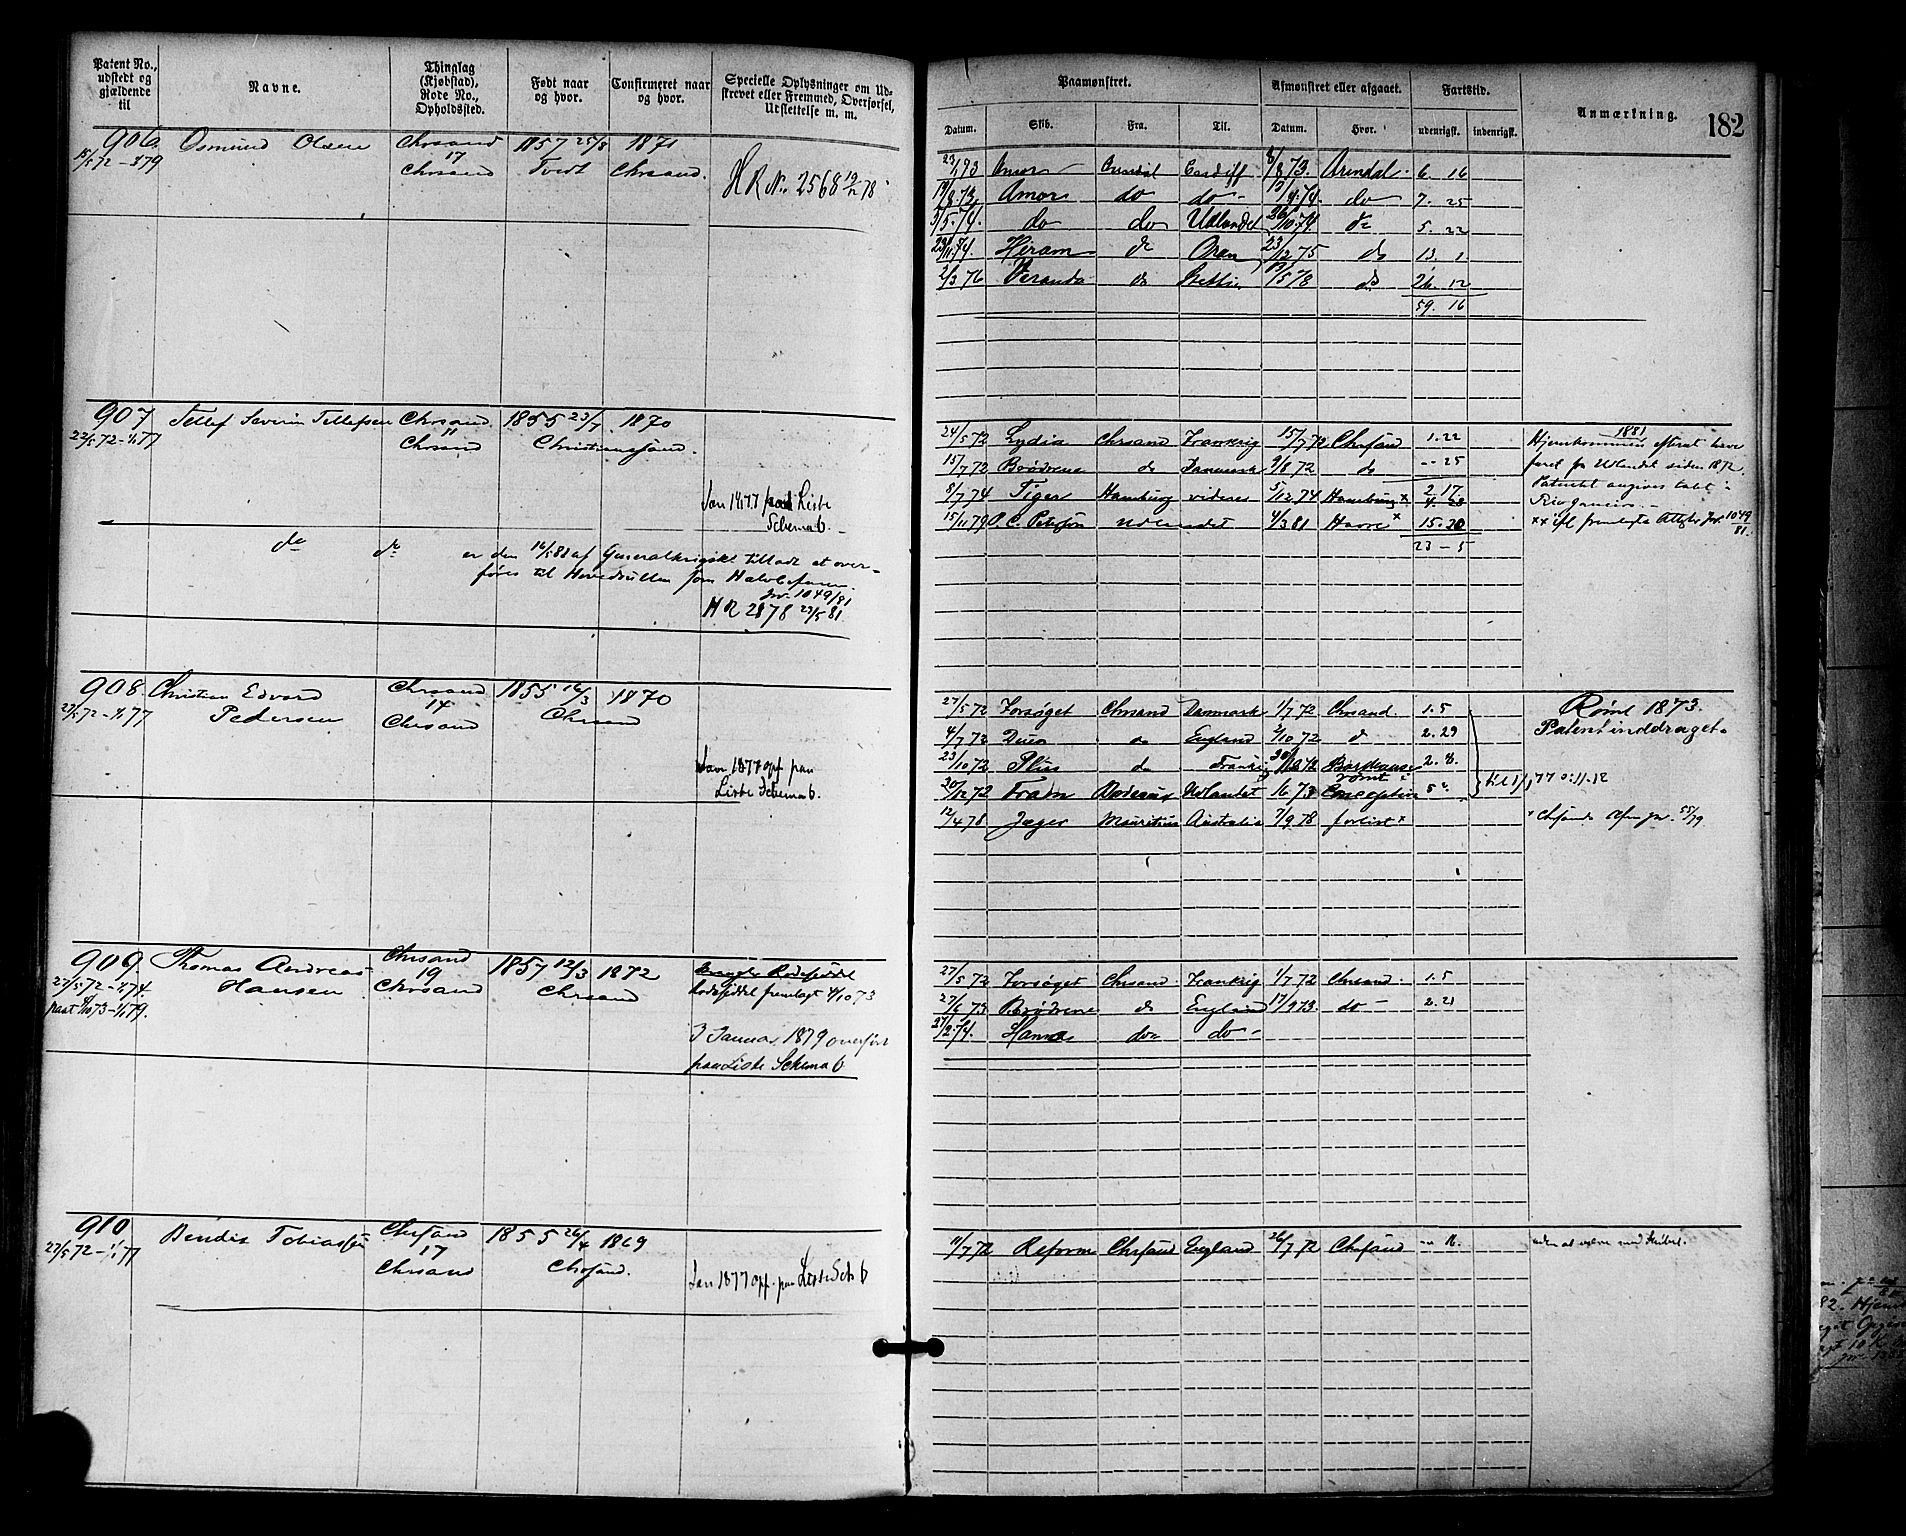 Patent No., udstedt og gjældende til
Navne.
Thinglag (Kjøbstad), Rode No., Opholdssted.
Født naar og hvor.
Confirmeret naar og hvor.
Specielle Oplysninger om Udskrevet eller Fremmed, Overførsel, Udslettelse m. m.
Paamønstret.
Afmønstret eller afgaaet.
Fartstid.
Anmærkning.
182
Datum. Skib. Fra. Til. Datum. Hvor. udenrigsk. indenrigsk.
906 Osmund Olsen Chrsand 1857 25/8 1871
15/5 72 - 1/1 79 17
Chrsand Tveit Chrsand.
H R No. 2568 19/12 78
23/1 73 Amor Arendal Cardiff 8/8 73. Arendal 6. 16
Amor do do 7. 25
3/5. 74. do do Udlandet 26/10 74 do 5. 22
Hiram do Oran 23/12 75 do 13. 1
2/3 76 Veranda do Stettin do 26. 12
59. 16
907 Tellef Severin Tellefsen Chrsand 1855 23/7 1870
22/5 72 - 1/1 77 11
Chrsand Christianssand.
Jan 1877 paa Liste
Schema 6.
do do er den 16/5 81 af Generalkrigskt tilladt at over-
føres til Hovedrullen som
Jnr. 1049/81
H R 2878 23/5 81
24/5 72 Lydia Chrsand Frankrig 15/7 72 Chrsand 1. 22
15/7 72 Brødrene do Danmark 9/8 72 do -- 25
8/7 74 Tiger Hamburg videre 5/12 74 Hamburg x
15/11 79 P. C. Petersen udlandet 4/3 81 Havre x 15. 20
23 - 5
1881
Hjemkommen efterat have
faret fra Udlandet siden 1872.
Patentet angives tabt i
Rio Janeiro. -
xx ifl fremlagte Attester Jnr. 1049/81
908. Christian Edvard Chrsand 1855 16/3 1870
27/5 72 - 1/1 77 Pedersen 14
Chrsand Chrsand
Jan 1877 opf paa
Liste Schema 6.
27/5 72 Forsøget Chrsand Danmark 1/7 72 Chrsand. 1. 5
4/7 72 England 2/10 72 do 2. 29
23/10 72 Plus do Frankrig Bordeaux 2. 8.
rømt
20/12 72 Fram Bordeaux Udlandet Conception
til 1/1 77
12/4 78 Jæger Mauritius Australia 7/9 78 forlist x
Rømt 1873.
Patent inddraget.
x Chrsands Jnr. 55/79
909 Thomas Andreas Chrsand 1857 12/3 1872
27/5 72 - 1/1 74. Hansen 19
Chrsand Chrsand
Rodeseddel
Rodeseddel fremlagt 4/10 73
3 Januar 1879 overført
paa Liste Schema 6
27/5 72 Forsøget Chrsand Frankrig 1/7 72 Chrsand. 1. 5
27/6 73 Brødrene do England 17/9 73. do - 2. 21
27/2. 74. Hanna do do -
910 Bendix Tobiassen Chrsand 1855 26/4 1869
27/5 72 - 1/1 77 17
Chrsand Chrsand.
Jan 1877 opf. paa Liste Sch 6
11/7 72 Reform Chrsand England 26/7 72 Chrsand -- 16. uden at være med Skibet.